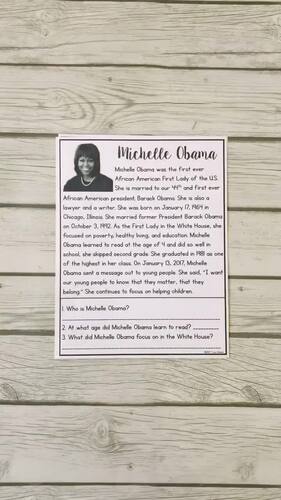 Michelle Obama
Michelle Obama was the first ever
African American First Lady of the U.S.
She is married to our 44th and first ever
African American president, Barack Obama. She is also a
lawyer and a writer. She was born on January 17, 1964 in
Chicago, Illinois. She married former President Barack Obama
on October 3, 1992. As the First Lady in the White House, she
focused on poverty, healthy living, and education. Michelle
Obama learned to read at the age of 4 and did so well in
school, she skipped second grade. She graduated in 1981 as one
of the highest in her class. On January 13, 2017, Michelle
Obama sent a message out to young people. She said, "I want
our young people to know that they matter, that they
belong." She continues to focus on helping children.
1. Who is Michelle Obama?
2. At what age did Michelle Obama learn to read?
3. What did Michelle Obama focus on in the White House?